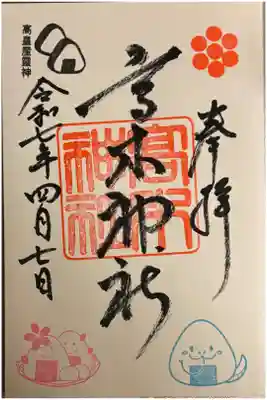 奉拝
高木神社
高木神社
高皇産霊神
令和七年四月七日